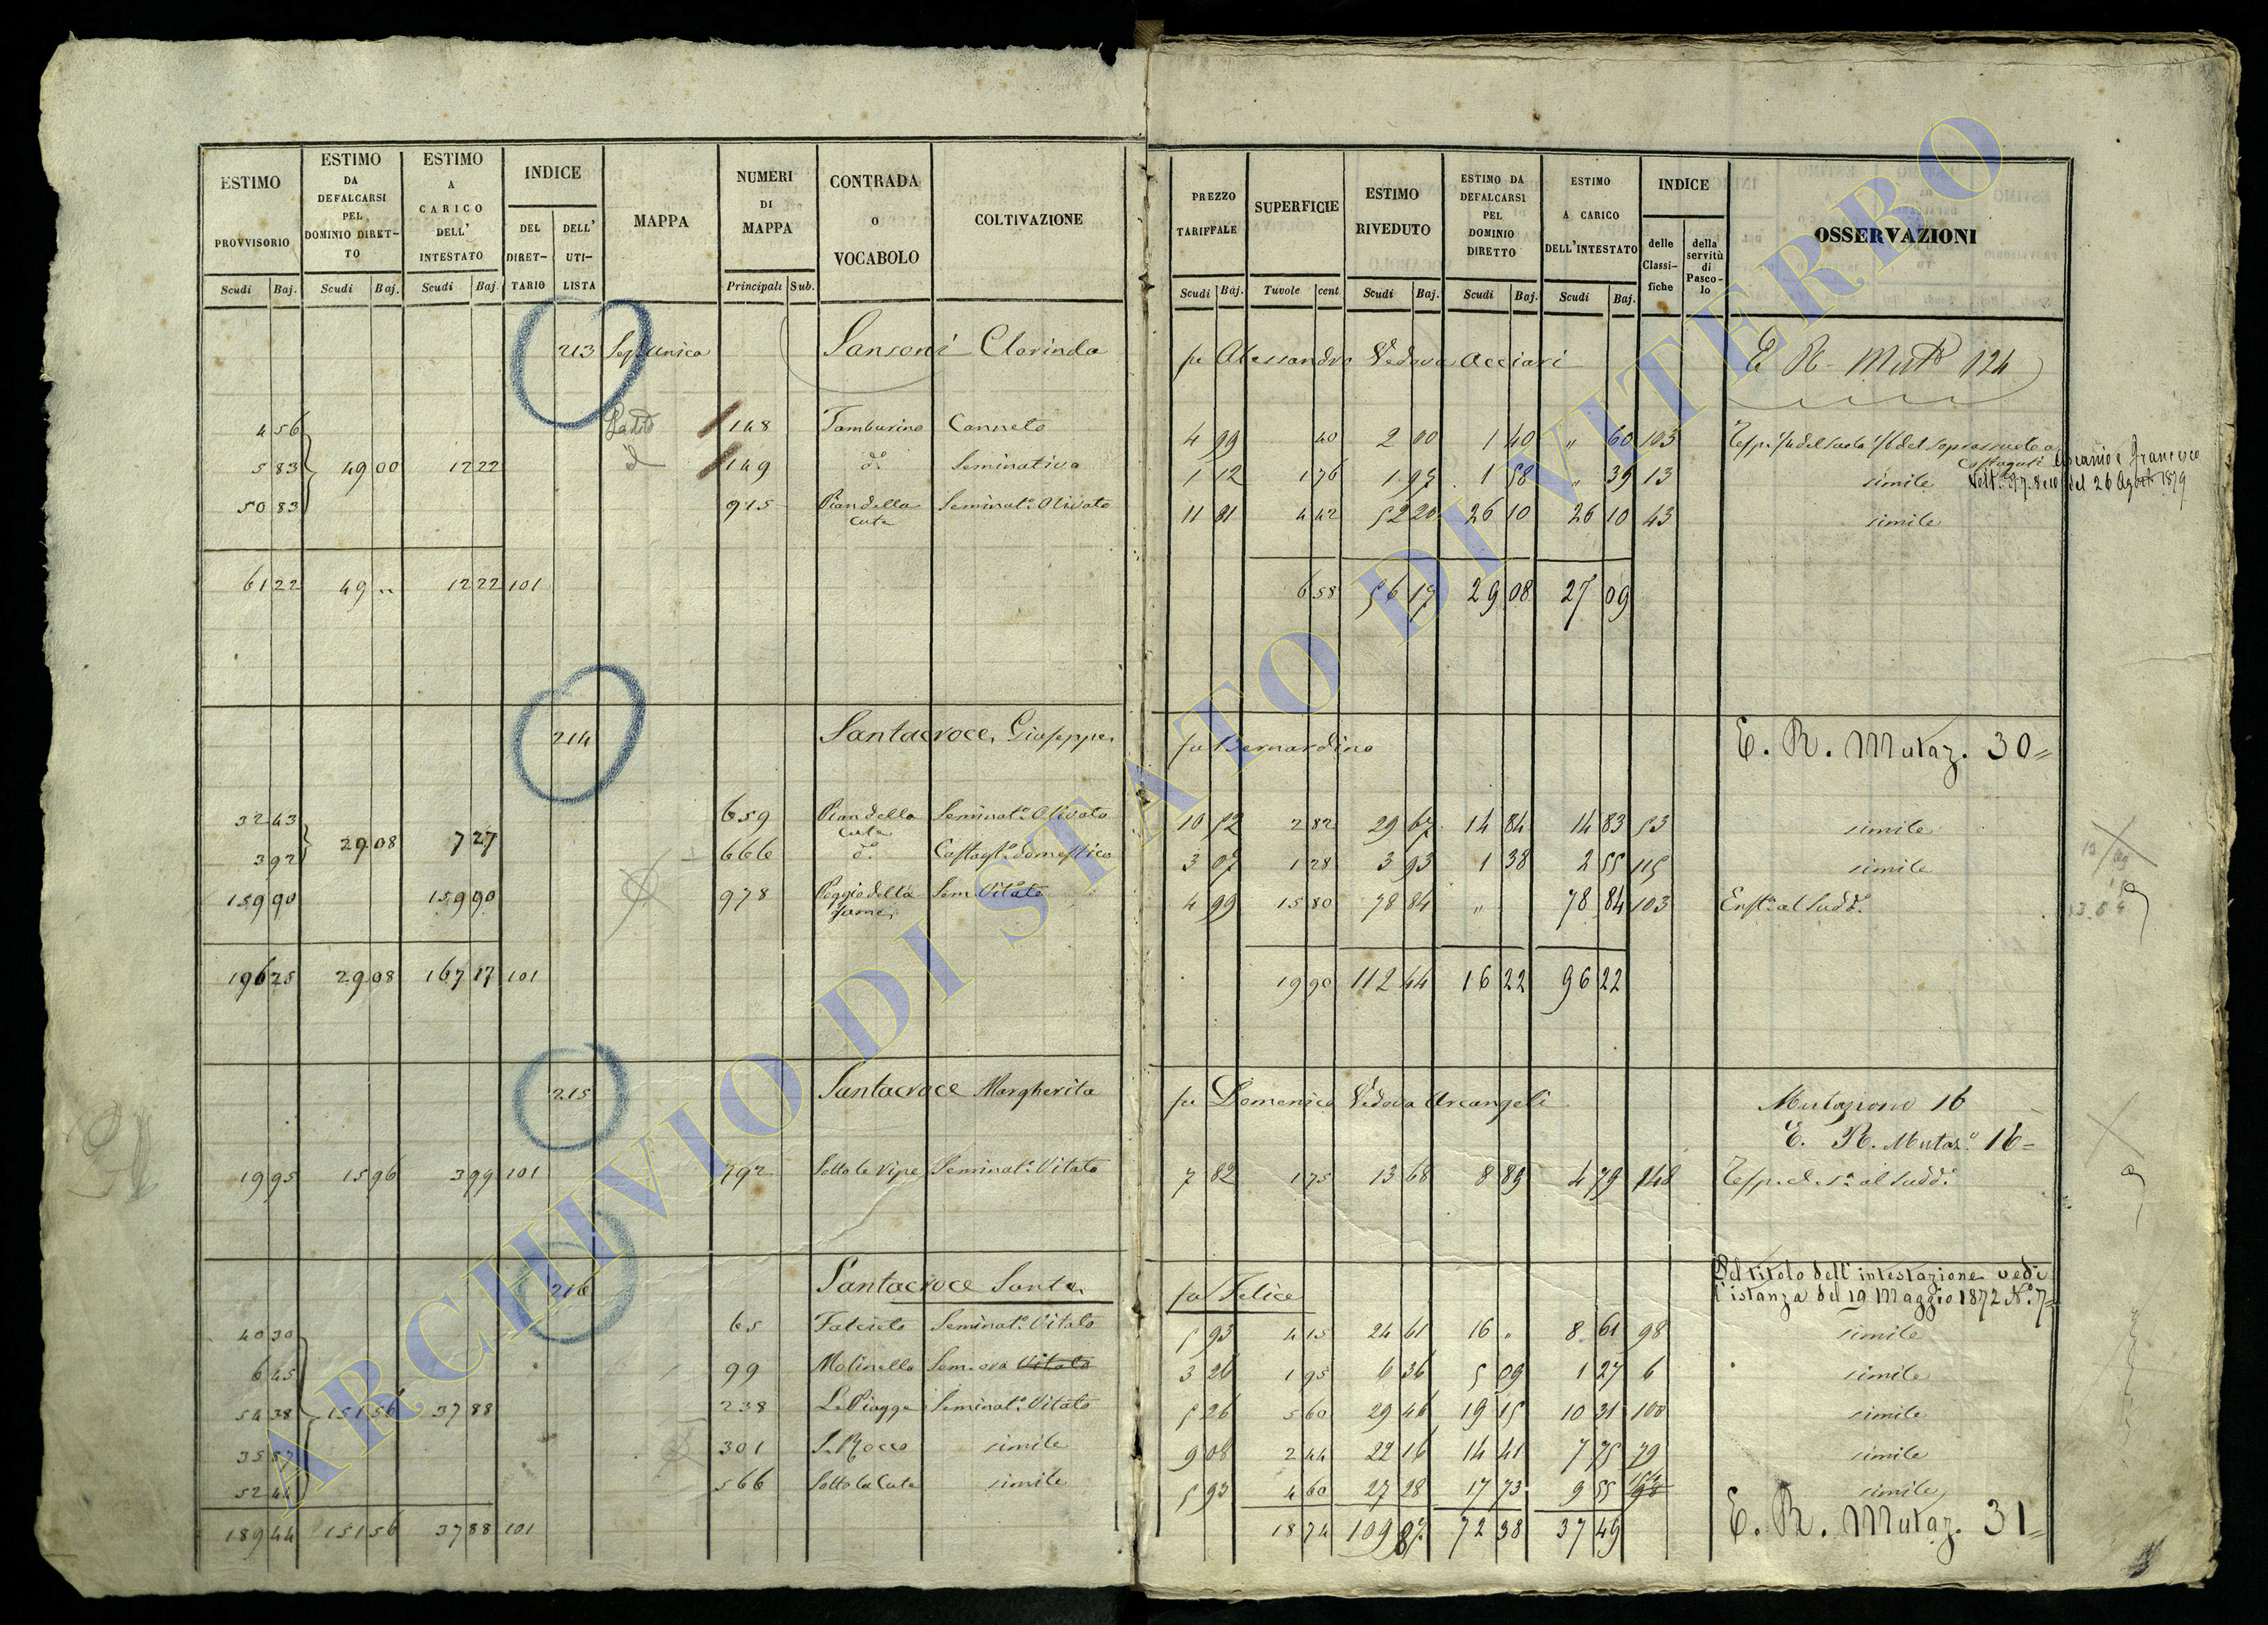 ESTIMO PROVVISORIO Scudi Baj.
ESTIMO DA DEFALCARSI PEL DOMINIO DIRET-TO Scudi Baj.
ESTIMO A CARICO DELL' INTESTATO Scudi Baj.
INDICE DEL DIRET-TARIO DELL' UTI-LISTA
MAPPA
NUMERI DI MAPPA Principali Sub.
CONTRADA o VOCABOLO
COLTIVAZIONE
PREZZO TARIFFALE Scudi Baj.
SUPERFICIE Tavole cent
ESTIMO RIVEDUTO Scudi Baj.
ESTIMO DA DEFALCARSI PEL DOMINIO DIRETTO Scudi Baj.
ESTIMO A CARICO DELL'INTESTATO Scudi Baj.
INDICE delle Classi-fiche della servitù di Pasco-lo
OSSERVAZIONI
213 Sez. Unica Sansoni Clorinda fu Alessandro Vedova Acciari E R - Mut. 124
4 56 148 Tamburino Canneto 4 99 40 2 00 1 40 " 60 103
5 83 49 00 12 22 149 d.o Seminativo 1 12 1 76 1 97 1 58 " 39 13 simile
del 26 Agosto 1879
50 83 915 Pian della Cute Seminat.o Olivato 11 81 4 42 52 20 26 10 26 10 43 simile
61 22 49 " 12 22 101 6 58 56 17 29 08 27 09
214 Santacroce Giuseppe fu Bernardino E. R. Mutaz. 30=
32 43 659 Pian della Cute Seminat.o Olivato 10 52 2 82 29 67 14 84 14 83 53 simile
3 92 29 08 7 27 666 d.o Castagt.o domestico 3 07 1 28 3 93 1 38 2 55 115 simile
159 90 159 90 978 Poggio della fame Sem. Vitato 4 99 15 80 78 84 " 78 84 103 Enft.a al Sudd.o
196 25 29 08 167 17 101 19 90 112 44 16 22 96 22
215 Santacroce Margherita fu Domenico Vedova Arcangeli Mutazione 16
E. R. Mutaz.e 16=
19 95 15 96 3 99 101 792 Sotto le Vigne Seminat.o Vitato 7 82 1 75 13 68 8 89 4 79 148
216 Santacroce Santa fu Felice Del titolo dell'intestazione vedi
l'istanza del 19 Maggio 1872 N.o 7=
40 30 65 Falceto Seminat.o Vitato 5 93 4 15 24 61 16 " 8 61 98 simile
6 45 99 Molinella Sem.ivo Vitato 3 26 1 95 6 36 5 09 1 27 6 simile
54 38 151 56 37 88 238 Le Piagge Seminat.o Vitato 5 26 5 60 29 46 19 15 10 31 100 simile
35 87 301 S. Rocco simile 9 08 2 44 22 16 14 41 7 75 79 simile
52 44 566 Sotto la Cute simile 5 93 4 60 27 28 17 73 9 55 simile
189 44 151 56 37 88 101 18 74 109 87 72 38 37 49 E. R. Mutaz. 31=
ARCHIVIO DI STATO DI VITERBO